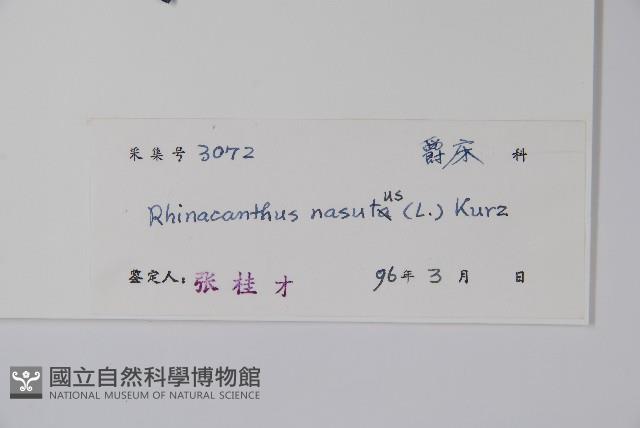 采集号 3072 爵床 科
Rhinacanthus nasutus (L.) Kurz
鉴定人: 张桂才 96年 3月 日
國立自然科學博物館
NATIONAL MUSEUM OF NATURAL SCIENCE